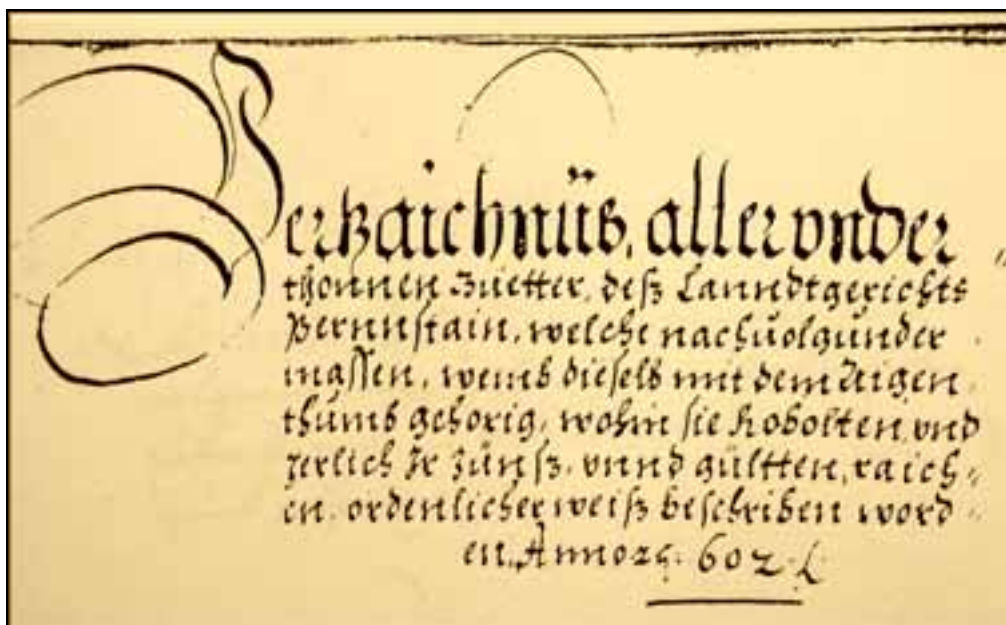 Vertzaichnüs, aller vnder „
thonnen Güetter, deß Lanndtgerichts
Pernnstain, welche nachuolgunder
massen, wemb dieselb mit dem Aigen
thumb gehörig, wohin sie Robolten vnd
Jerlich Jr Zünß, vnnd gültten, raich„
en, ordenlicher weiß beschriben word„
en, Anno 602